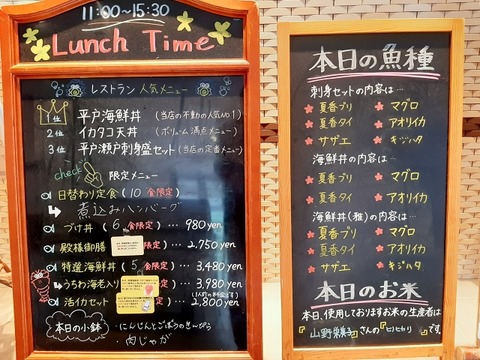 11:00～15:30
Lunch Time
レストラン 人気メニュー
1位 平戸海鮮丼 (当店の不動の人気No.1)
2位 イカタコ天丼 (ボリューム満点メニュー)
3位 平戸瀬戸刺身盛セット (当店の定番メニュー)
check! 限定メニュー
日替わり定食 (10食限定)
↳ 煮込みハンバーグ
づけ丼 (6食限定) … 980yen
殿様御膳 … 2,750yen
特選海鮮丼 (5食限定) … 3,480yen
↳うちわ海老入り … 3,980yen
活イカセット … 2,800yen
本日の小鉢
・にんじんとごぼうのきんぴら
・肉じゃが
本日の魚種
刺身セットの内容は…
夏香ブリ マグロ
夏香タイ アオリイカ
サザエ キジハタ
海鮮丼の内容は…
夏香ブリ マグロ
夏香タイ アオリイカ
海鮮丼(雅)の内容は…
夏香ブリ マグロ
夏香タイ アオリイカ
サザエ キジハタ
本日のお米
本日、使用しておりますお米の生産者は
『山野 さんの『ヒノヒカリ』です。